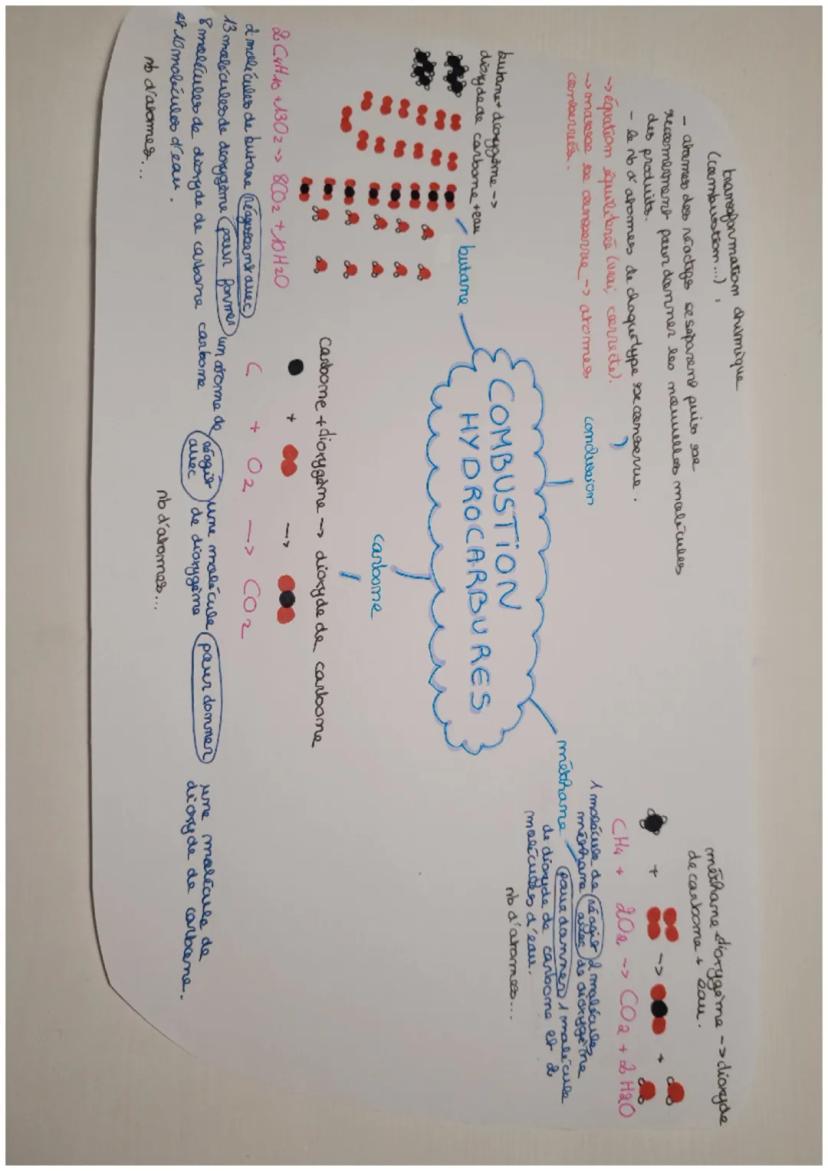 COMBUSTION
HYDROCARBURES
conclusion
transformation chimique
(combustion...) :
- atomes des réactifs se séparent puis se
recombinent pour donner les nouvelles molécules
des produits.
- le nb d'atomes de chaque type se conserve.
-> équation équilibrée (vrai, correcte).
-> masse se conserve -> atomes
conservés.
méthane
méthane dioxygène -> dioxyde
de carbone + eau.
+ -> +
CH4 + 2O2 -> CO2 + 2H2O
1 molécule de réagit 2 molécules
méthane avec de dioxygène
pour donner 1 molécule
de dioxyde de carbone et 2
molécules d'eau.
nb d'atomes...
butane
butane + dioxygène ->
dioxyde de carbone + eau
2C4H10 + 13O2 -> 8CO2 + 10H2O
2 molécules de butane réagissent avec
13 molécules de dioxygène pour former
8 molécules de dioxyde de carbone
et 10 molécules d'eau.
nb d'atomes...
carbone
carbone + dioxygène -> dioxyde de carbone
+ ->
C + O2 -> CO2
un atome de réagit une molécule pour donner une molécule de
carbone avec de dioxygène dioxyde de carbone.
nb d'atomes...